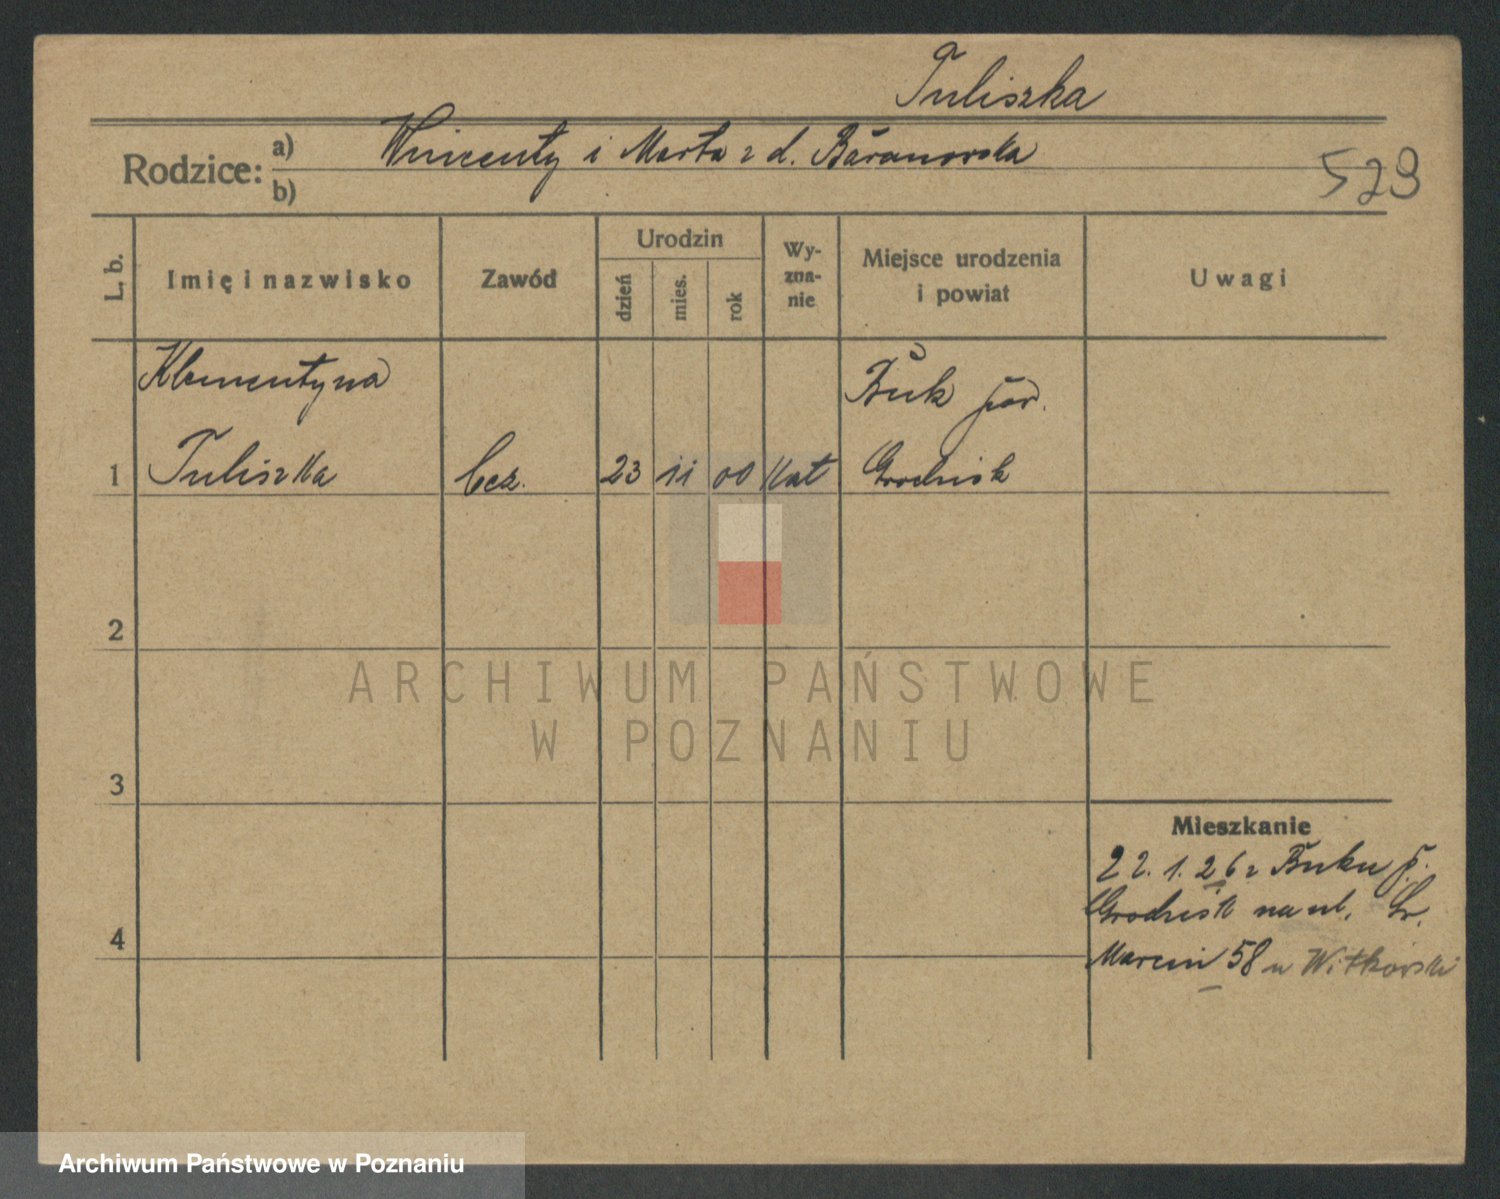 Tuliszka
Rodzice:
a) Wincenty i Marta z d. Baranowska
b)
529
L. b.
Imię i nazwisko
Zawód
Urodzin
dzień
mies.
rok
Wy-
zna-
nie
Miejsce urodzenia
i powiat
Uwagi
Klementyna
Tuliszka
1
bez.
23
11
00
Kat
Buk pow.
Grodzisk
2
3
4
ARCHIWUM PAŃSTWOWE
W POZNANIU
Mieszkanie
22.1.26 z Buku p.
Grodzisk na ul. Św.
Marcin 58 u Witkowski
Archiwum Państwowe w Poznaniu